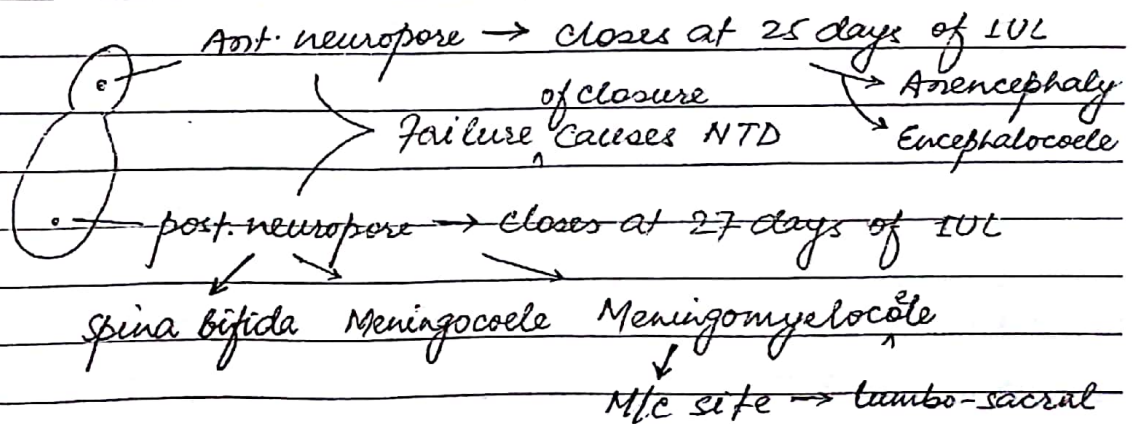 Ant. neuropore → closes at 25 days of IUL
→ Anencephaly
of closure
Failure ^ causes NTD
→ Encephalocoele
post. neuropore → closes at 27 days of IUL
Spina bifida Meningocoele Meningomyelocoele
M/C site → lumbo-sacral